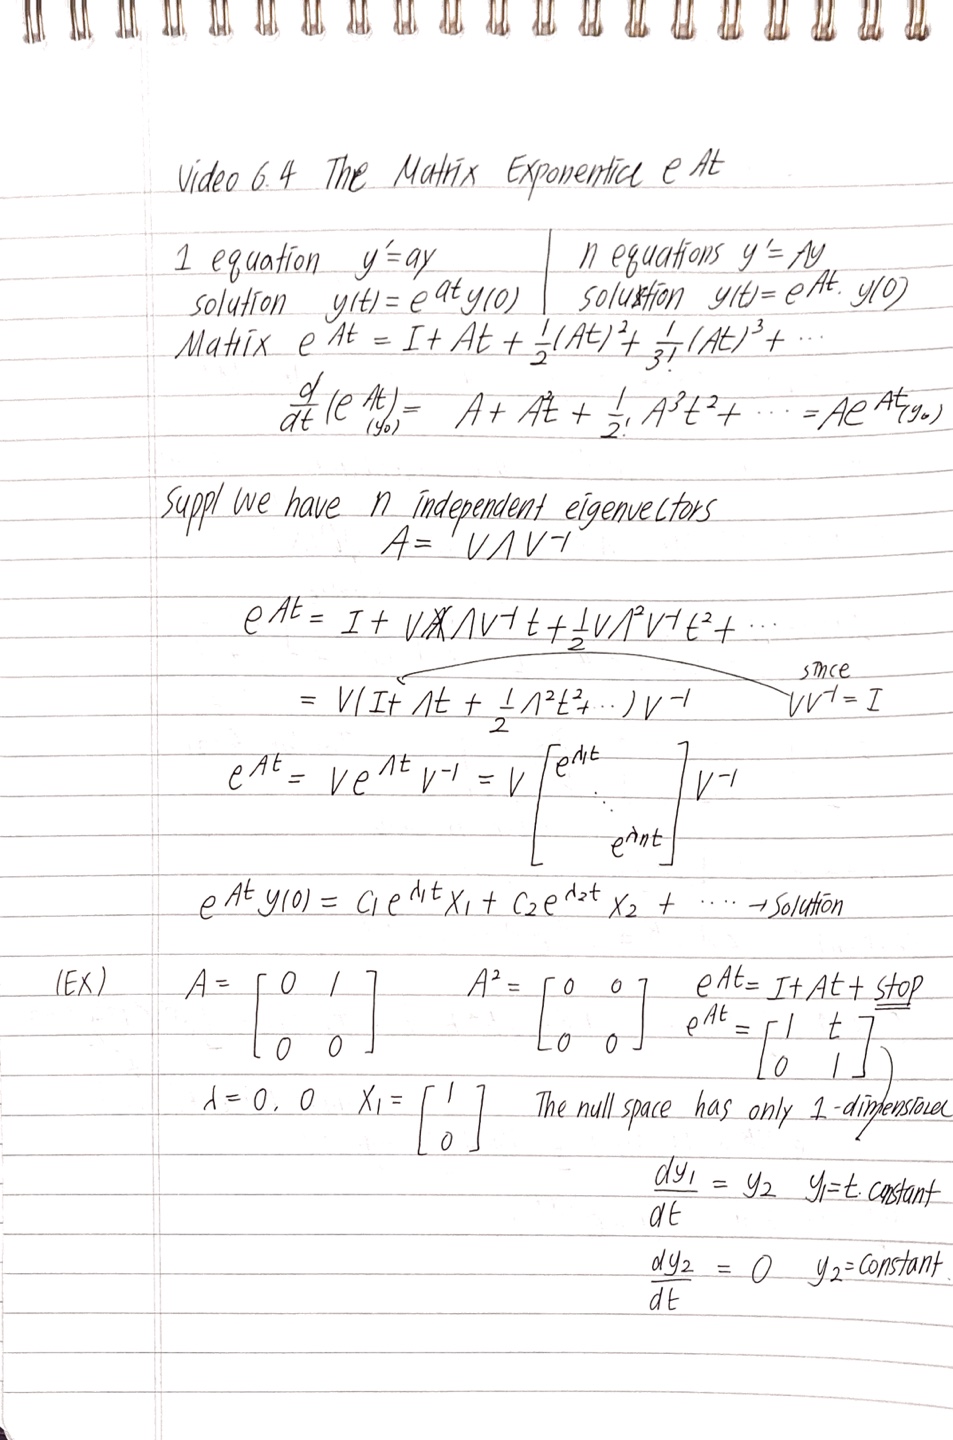 Video 6.4 The Matrix Exponentice e At
1 equation y'=ay
solution y(t)=e^{at}y(0)
n equations y'=Ay
solution y(t)=e^{At}. y(0)
Matrix e^{At} = I+ At + 1/2 (At)² + 1/3! (At)³ + ...
d/dt (e^{At})(y₀) = A + A²t + 1/2! A³t² + ... = Ae^{At}(y₀)
Suppl we have n independent eigenvectors
A = VΛV⁻¹
e^{At} = I + VΛV⁻¹t + 1/2 VΛ²V⁻¹t² + ...
since
= V(I+ Λt + 1/2 Λ²t² + ...)V⁻¹ VV⁻¹ = I
e^{At} = Ve^{Λt}V⁻¹ = V [e^{λ₁t} ⋱ e^{λnt}] V⁻¹
e^{At}y(0) = C₁e^{λ₁t}X₁ + C₂e^{λ₂t}X₂ + .... → Solution
(EX) A = [0 1; 0 0] A² = [0 0; 0 0] e^{At} = I+At+ stop
e^{At} = [1 t; 0 1]
λ=0, 0 X₁ = [1; 0] The null space has only 1-dimensional
dy₁/dt = y₂ y₁=t. constant
dy₂/dt = 0 y₂=constant